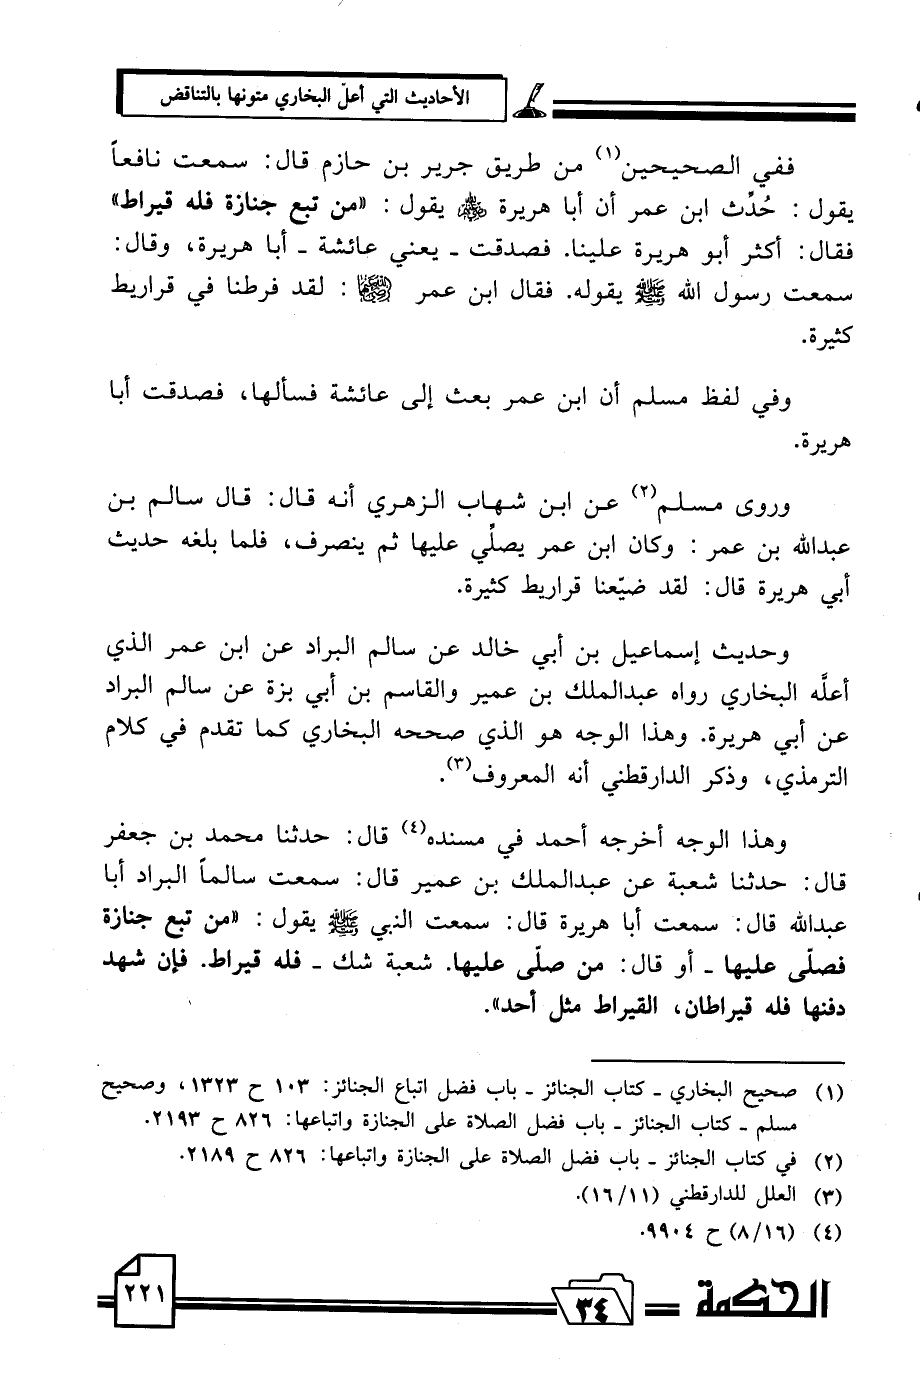 الأحاديث التي أعلّ البخاري متونها بالتناقض
ففي الصحيحين(١) من طريق جرير بن حازم قال: سمعت نافعاً
يقول: حُدِّث ابن عمر أن أبا هريرة ﵁ يقول: «من تبع جنازة فله قيراط»
فقال: أكثر أبو هريرة علينا. فصدقت ـ يعني عائشة ـ أبا هريرة، وقال:
سمعت رسول الله ﷺ يقوله. فقال ابن عمر ﵄: لقد فرطنا في قراريط
كثيرة.
وفي لفظ مسلم أن ابن عمر بعث إلى عائشة فسألها، فصدقت أبا
هريرة.
وروى مسلم(٢) عن ابن شهاب الزهري أنه قال: قال سالم بن
عبدالله بن عمر: وكان ابن عمر يصلّي عليها ثم ينصرف، فلما بلغه حديث
أبي هريرة قال: لقد ضيّعنا قراريط كثيرة.
وحديث إسماعيل بن أبي خالد عن سالم البراد عن ابن عمر الذي
أعلَّه البخاري رواه عبدالملك بن عمير والقاسم بن أبي بزة عن سالم البراد
عن أبي هريرة. وهذا الوجه هو الذي صححه البخاري كما تقدم في كلام
الترمذي، وذكر الدارقطني أنه المعروف(٣).
وهذا الوجه أخرجه أحمد في مسنده(٤) قال: حدثنا محمد بن جعفر
قال: حدثنا شعبة عن عبدالملك بن عمير قال: سمعت سالماً البراد أبا
عبدالله قال: سمعت أبا هريرة قال: سمعت النبي ﷺ يقول: «من تبع جنازة
فصلّى عليها ـ أو قال: من صلّى عليها. شعبة شك ـ فله قيراط. فإن شهد
دفنها فله قيراطان، القيراط مثل أحد».
(١) صحيح البخاري ـ كتاب الجنائز ـ باب فضل اتباع الجنائز: ١٠٣ ح ١٣٢٣، وصحيح
مسلم ـ كتاب الجنائز ـ باب فضل الصلاة على الجنازة واتباعها: ٨٢٦ ح ٢١٩٣.
(٢) في كتاب الجنائز ـ باب فضل الصلاة على الجنازة واتباعها: ٨٢٦ ح ٢١٨٩.
(٣) العلل للدارقطني (١٦/١١).
(٤) (٨/١٦) ح ٩٩٠٤.
الحكمة ٣٤ ٢٢١